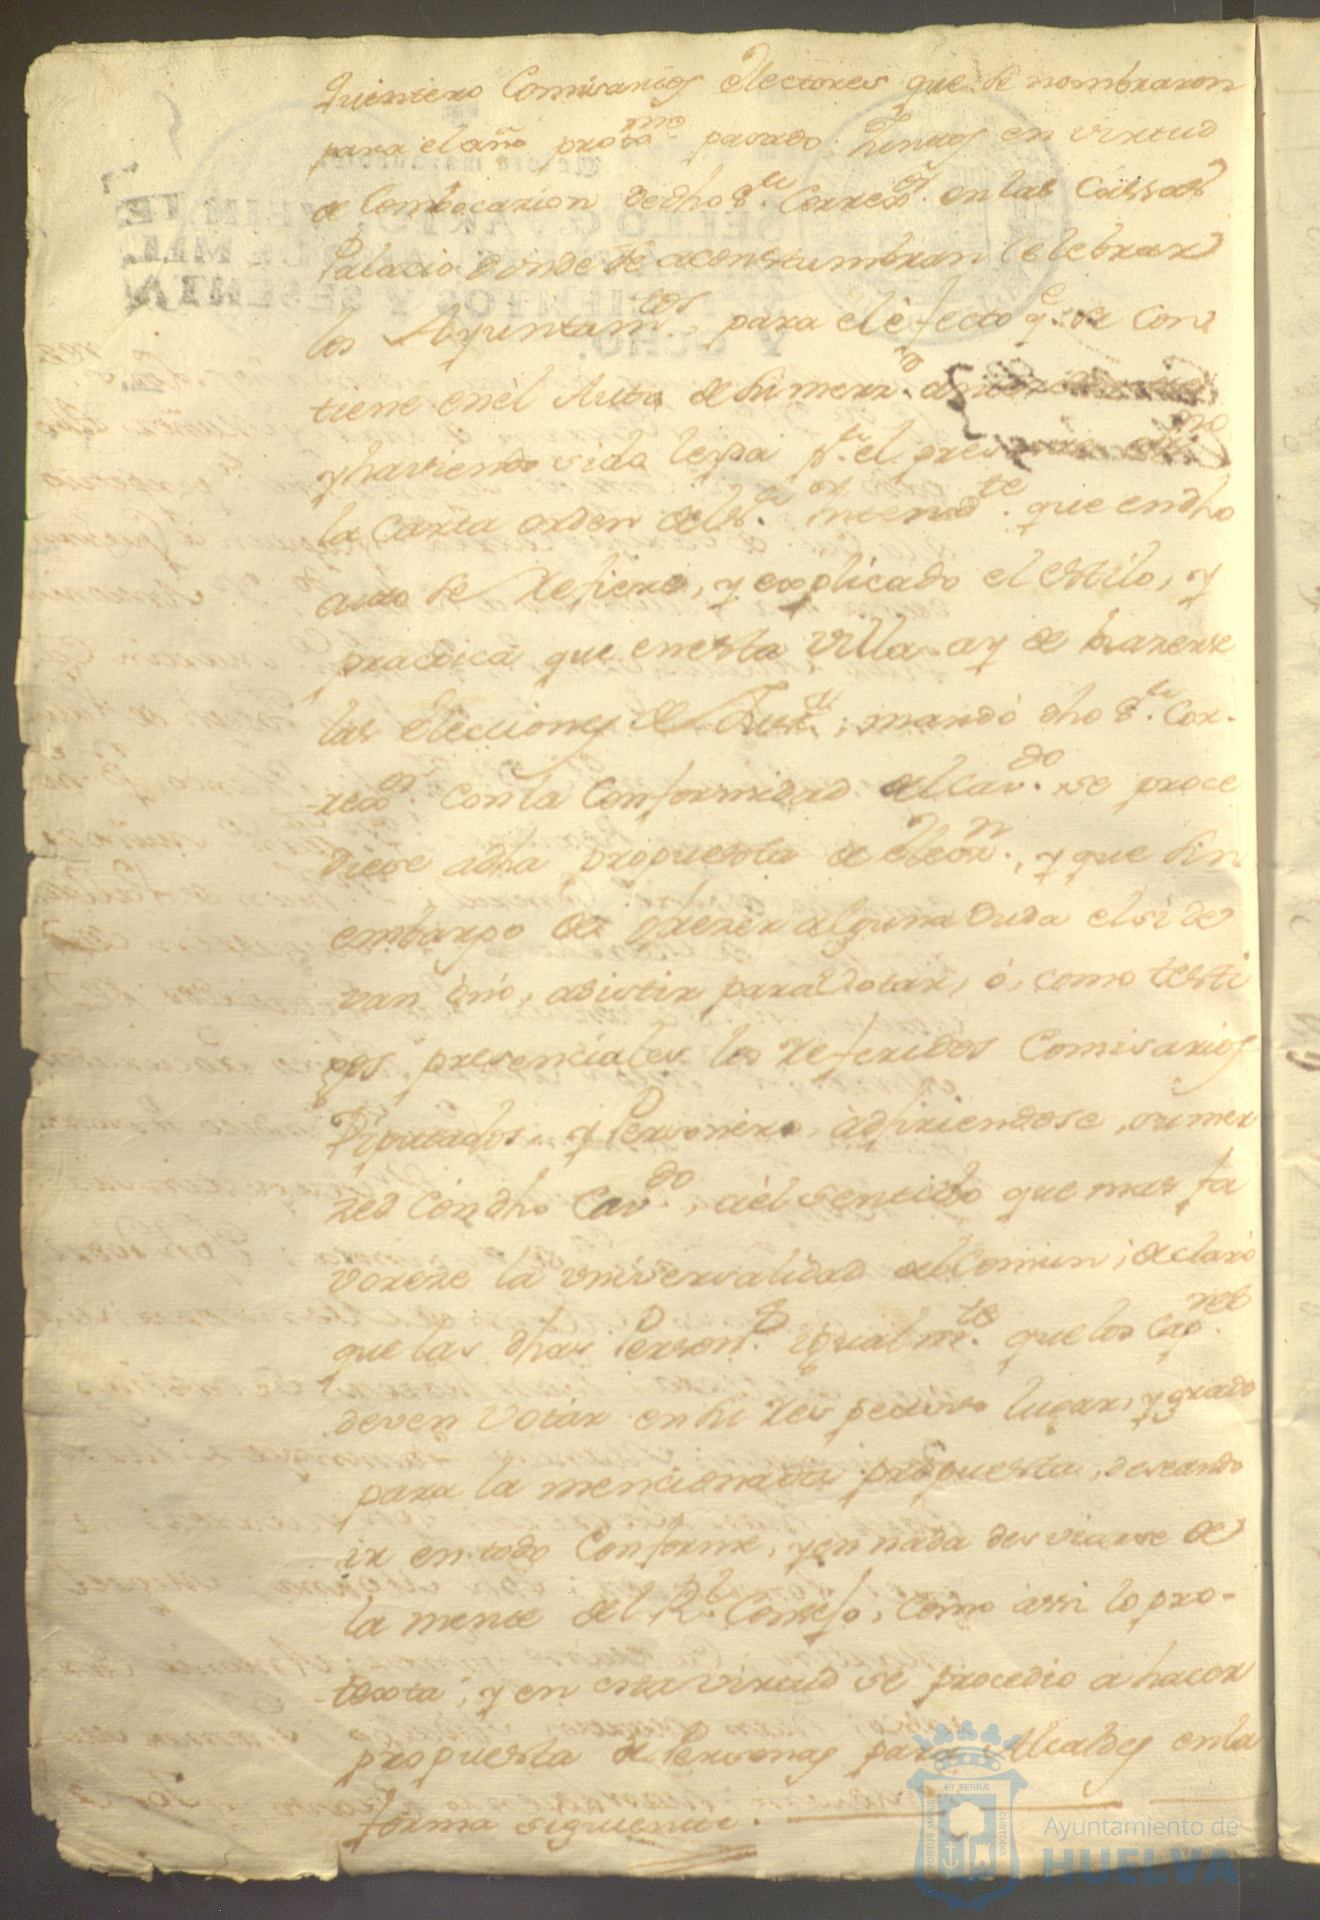 Quintero Comisarios electores que se nombraron
para el año proximo pasado; Juntos en virtud
de Combocacion de dho Sr. Corregor. en las Cassas
Palacio donde se aconstumbran Celebrar
los Ayuntamtos, para el efecto qe. se Con
tiene en el Auto de su merzd.
y haviendo sido leyda pr. el presente essno
la Carta orden del Sr. Intendte. que en dho
auto se refiere, y explicado el estilo, y
practica que en esta Villa ay de hazerse
las elecciones de Justas; mandó dho Sr. Cor-
regor. con la Conformidad del Cavdo. se proce
diese a dha propuesta de eleon., y que sin
embargo de ofrezer alguna duda el si de
van ò no, asistir para Votar, ó, como testi
gos presenciales los referidos Comisarios
Diputados, y Personero, adhiriendose, su mer
zed con dho Cavdo, à el sentido que mas fa
voreze la universalidad del Comun; declaró
que las dhas Person.s igualmte. que los Capres
deven Votar en su respectivo lugar, y grado
para la mencionada propuesta, deseando
ir en todo Conforme, y en nada desviarse de
la mente del Rl. Consejo, como assi lo pro-
texta; y en esta virtud se procedio a hacer
propuesta de Personas para Alcaldes en la
forma siguiente.
SELLO QVARTO, VEINTE
Y OCHO.
ET TERRÆ
CUSTODIA
PORTUS MARIS
Ayuntamiento de
HUELVA